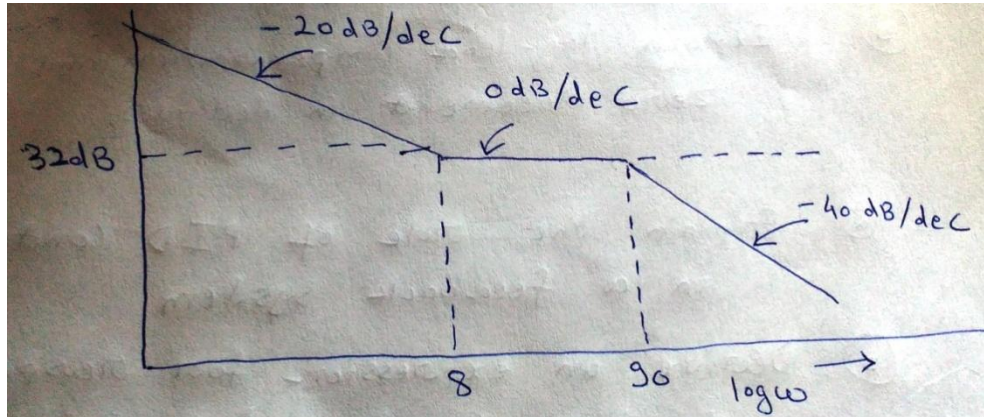 - 20dB/deC
0dB/deC
32dB
- 40 dB/deC
8
90
logω